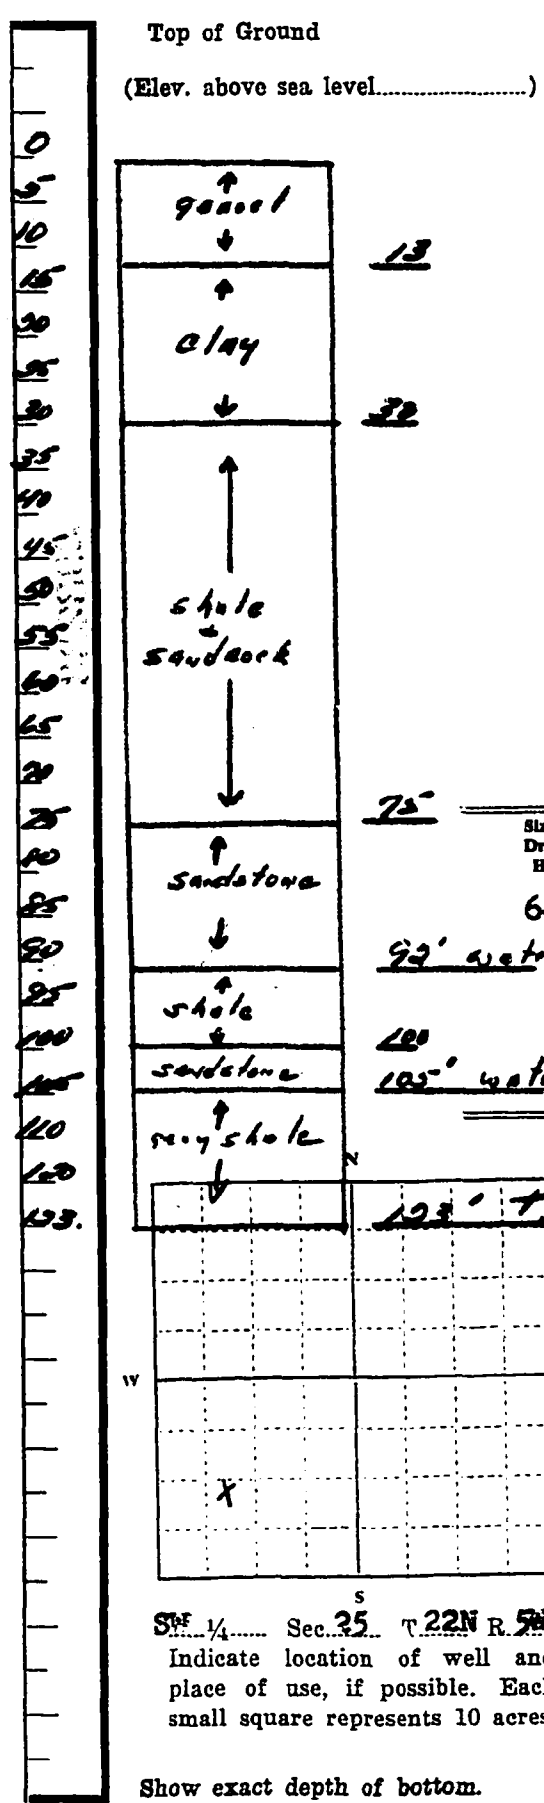 Top of Ground
(Elev. above sea level......................)
0
5
10
15
20
25
30
35
40
45
50
55
60
65
70
75
80
85
90
95
100
105
110
120
123.
gravel
13
clay
30
shale
+
sandrock
75
sandstone
92' wate
shale
100
sandstone
105' wate
shale
123'
Siz
Dr
H
6
N
W
X
S
¼ Sec. 25 T. 22N R.
Indicate location of well and
place of use, if possible. Each
small square represents 10 acres
Show exact depth of bottom.